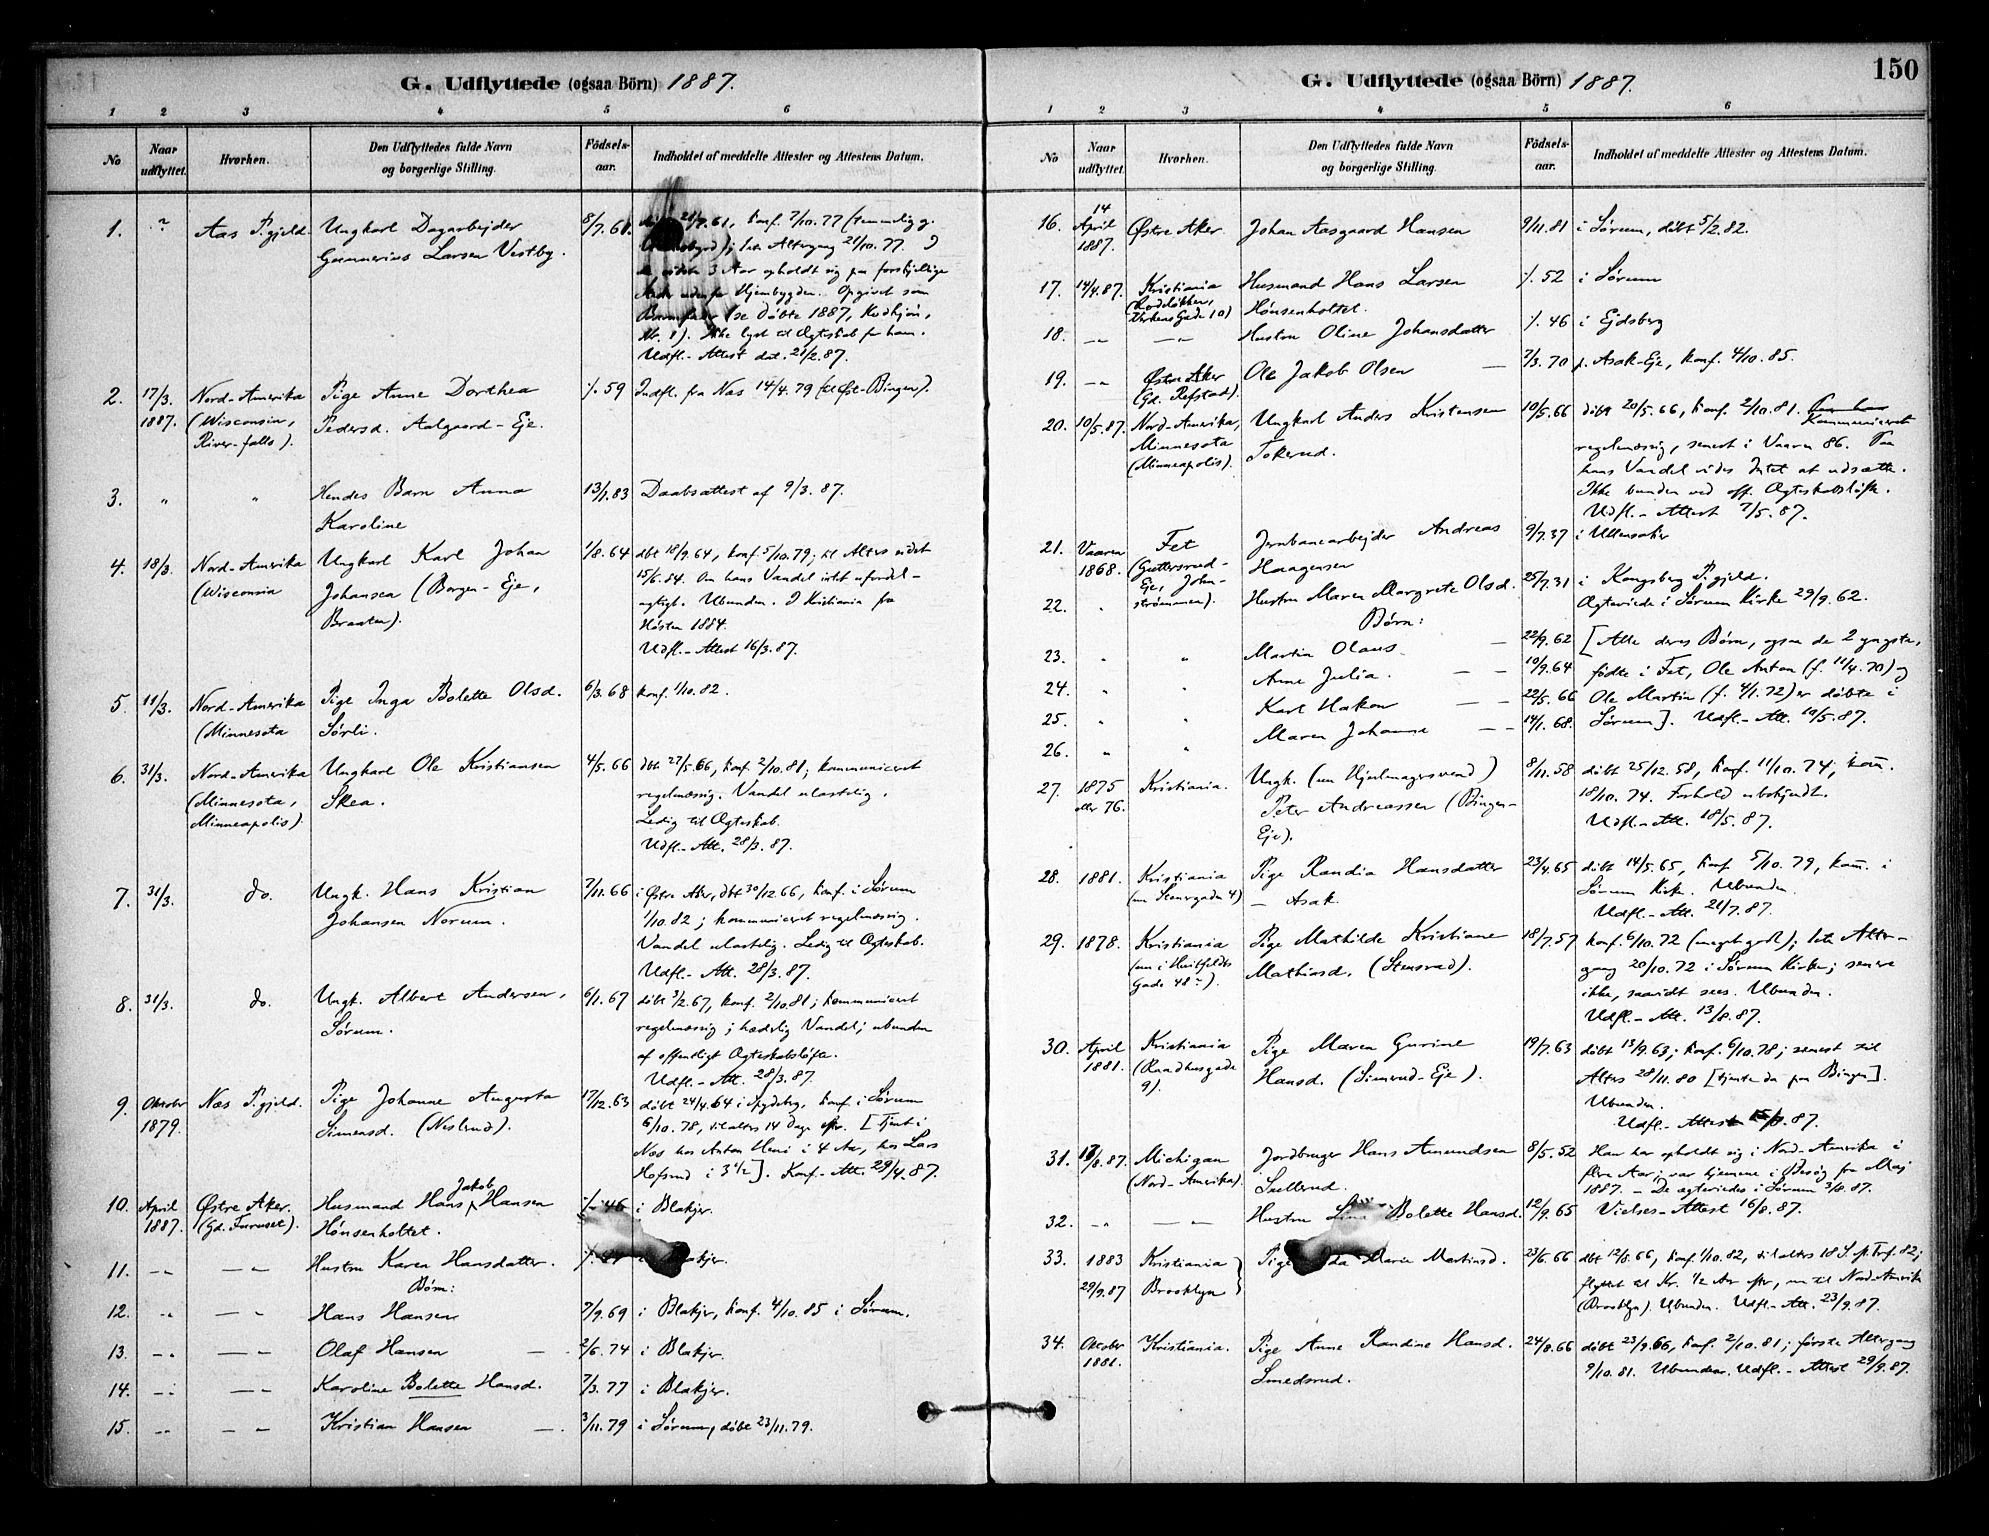 G. Udflyttede (ogsaa Börn) 1887.
1 2 3 4 5 6
No
Naar udflyttet.
Hvorhen.
Den Udflyttedes fulde Navn og borgerlige Stilling.
Födsels-aar.
Indholdet af meddelte Attester og Attestens Datum.
1. ? Aas P.gjeld. Ungkarl Dagarbejder
Gunnerius Larsen Vestby.
konf. 7/10.77
Altergang 21/10.77. I
3 Aar opholdt sig paa forskjellige
Hjembygden. Opgivet som
Barnefader (se Døbte 1887,
Nr. 1). Ikke lyst til Ægteskab for ham.
Udfl.-Attest dat. 21/2.87.
2. 17/3. 1887. Nord-Amerika
(Wisconsin,
River-falls).
Pige Anne Dorthea
Pedersd. Aalgaard-Eje.
%. 59 Indfl. fra Næs 14/4.79 (til Øst-Bingen).
3. " " Hendes Barn Anna
Karoline
13/1.83 Daabsattest af 9/3.87.
4. 18/3. Nord-Amerika
(Wisconsin
Ungkarl Karl Johan
Johansen (Borgen-Eje,
Braaten).
1/8.64 dbt 18/9.64, konf. 5/10.79; til Alters sidst
15/6.84. Om hans Vandel intet ufordel-
agtigt. Ubunden. I Kristiania fra
Høsten 1884.
Udfl.-Attest 16/3.87.
5. 11/3. Nord-Amerika
(Minnesota
Pige Inga Bolette Olsd.
Sørli.
6/3.68 konf. 1/10.82.
6. 31/3. Nord-Amerika
(Minnesota,
Minneapolis).
Ungkarl Ole Kristiansen
Skea.
4/5.66 dbt 27/5.66, konf. 2/10.81; kommuniceret
regelmæssig. Vandel ulastelig.
Ledig til Ægteskab.
Udfl.-Att. 28/3.87.
7. 31/3. do. Ungk. Hans Kristian
Johansen Norum.
7/11.66 i Østre Aker, dbt 30/12.66, konf. i Sørum
1/10.82; kommuniceret regelmæssig.
Vandel ulastelig. Ledig til Ægteskab.
Udfl.-Att. 28/3.87.
8. 31/3. do. Ungk. Albert Andersen,
Sørum.
6/1.67 døbt 3/2.67, konf. 2/10.81; kommuniceret
regelmæssig; hæderlig Vandel; ubunden
af offentligt Ægteskabsløfte.
Udfl.-Att. 28/3.87.
9. Oktober 1879. Næs P.gjeld. Pige Johanne Augusta
Simensd. (Neslrud).
17/12.63 døbt 24/4.64 i Spydebg, konf. i Sørum
6/10.78, til alters 14 Dage eftr. [Tjent i
Næs hos Anton Heni i 4 Aar, hos Lars
Hofsrud i 3½]. Konf.-Att. 29/4.87.
10. April 1887. Østre Aker.
(Gd. Furuset).
Husmand Hans Jakob Hansen
Hønsenholtet.
%. 46 i Blakjer.
11. -"- -"- Hustru Karen Hansdatter.
Børn:
12. -"- -"- Hans Hansen 7/9.69 i Blakjer, konf. 4/10.85 i Sørum.
13. -"- -"- Olaf Hansen 2/6.74 i Blakjer.
14. -"- -"- Karoline Bolette Hansd. 7/3.77 i Blakjer.
15. -"- -"- Kristian Hansen 3/11.79 i Sørum, døbt 23/11.79.
150
G. Udflyttede (ogsaa Börn) 1887.
1 2 3 4 5 6
No
Naar udflyttet.
Hvorhen.
Den Udflyttedes fulde Navn og borgerlige Stilling.
Födsels-aar.
Indholdet af meddelte Attester og Attestens Datum.
16. 14 April 1887. Østre Aker. Johan Aasgaard Hansen 9/11.81 i Sørum, døbt 5/2.82.
17. 14/4.87. Kristiania
(Rodeløkken,
Verkens Gade 10)
Husmand Hans Larsen
Hønsenholtet.
%. 52 i Sørum
18. -"- -"- Hustru Oline Johansdatter %. 46 i Ejdsberg
19. -"- Østre Aker
(Gd. Refstad).
Ole Jakob Olsen 7/3.70 p. Asak-Eje, konf. 4/10.85.
20. 10/5.87. Nord-Amerika,
Minnesota
(Minneapolis).
Ungkarl Anders Kristensen
Tokerud.
10/5.66 døbt 20/5.66, konf. 2/10.81.
Kommuniceret
regelmæssig, senest i Vaaren 86. Paa
hans Vandel vides Intet at udsætte.
Ikke bunden ved off. Ægteskabsløfte.
Udfl.-Attest 7/5.87.
21. Vaaren 1868. Fet
(Guttersrud-
Eje, John-
strømmen).
Jernbanearbejder Andreas
Haagensen
9/7.37 i Ullensaker
22. " Hustru Maren Margrete Olsd. 25/7.31 i Kongsberg P.gjeld.
Ægteviede i Sørum Kirke 29/9.62.
Børn:
23. " " Martin Olaus 22/9.62 [Alle deres Børn, ogsaa de 2 yngste,
24. " " Anne Julia. 10/9.64 fødte i Fet, Ole Anton (f. 11/4.70) og
25. " " Karl Hakon 22/5.66 Ole Martin (f. 4/1.72) er døbte i
26. " " Maren Johanne 14/1.68. Sørum]. Udfl.-Att. 19/5.87.
27. 1875 eller 76. Kristiania. Ungk. (nu Hjulmagersvend)
Peter Andreassen (Bingen-
Eje).
8/11.58 døbt 25/12.58, konf. 11/10.74; kom.
18/10.74. Forhold ubekjendt.
Udfl.-Att. 18/5.87.
28. 1881. Kristiania
(nu Stenersgaden 4)
Pige Randia Hansdatter
- Asak.
23/4.65 døbt 14/5.65, konf 5/10.79, kom. i
Sørum Kirke. Ubunden.
Udfl.-Att. 21/7.87.
29. 1878. Kristiania
(nu i Huitfeldts
Gade 48).
Pige Mathilde Kristiane
Mathiasd. (Stensrud).
18/7.57 konf. 6/10.72 (meget godt); 1ste Alter-
gang 20/10.72 i Sørum Kirke; senere
ikke, saavidt sees. Ubunden.
Udfl.-Att. 13/8.87.
30. April 1881. Kristiania
(Raadhusgade
9).
Pige Maren Gurine
Hansd. (Simerud-Eje).
19/7.63 døbt 13/9.63; konf. 6/10.78; senest til
Alters 28/11.80 [tjente da paa Bingen].
Ubunden.
Udfl.-Attest 15/8.87.
31. 17/8.87. Michigan
(Nord-Amerika).
Jordbruger Hans Amundsen
Sullerud.
8/5.52 Han har opholdt sig i Nord-Amerika i
flere Aar; var hjemme i Besøg fra Maj
1887. - De ægteviedes i Sørum 3/8.87.
32. -"- -"- Hustru Bolette Hansd. 12/9.65 Vielses-Attest 16/8.87.
33. 1883 Kristiania
29/9.87 Brooklyn
Pige Ida Marie Martinsd. 23/6.66 dbt 12/8.66, konf. 1/10.82, til alters 18 S. p. Trf. 82;
flyttet til Kr. ½ Aar eftr, nu til Nord-Amerika
(Brooklyn). Ubunden. Udfl.-Att. 23/9.87.
34. Oktober 1881. Kristiania. Pige Anne Randine Hansd.
Smedsrud.
24/8.66 døbt 23/9.66, konf. 2/10.81; første Altergang
9/10.81. Ubunden. Udfl.-Attest 29/9.87.